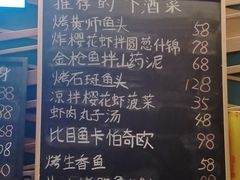 推荐的下酒菜
烤黄师鱼头 58
炸樱花虾拌圆葱什锦 78
金枪鱼拌山药泥 68
烤石斑鱼头 128
凉拌樱花虾菠菜 35
虾肉丸子汤 48
比目鱼卡怕奇欧 98
烤生香鱼 58
身